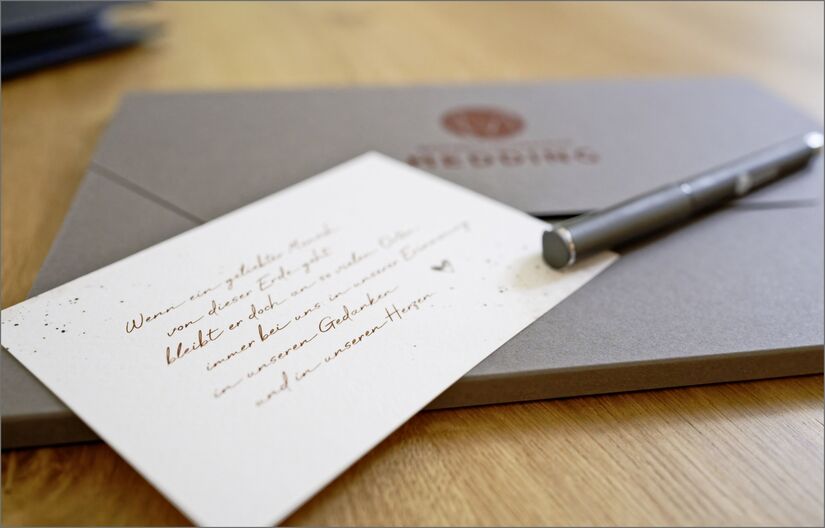 HEDDING
Wenn ein geliebter Mensch
von dieser Erde geht
bleibt er doch an so vielen Orten
immer bei uns, in unserer Erinnerung
in unseren Gedanken
und in unseren Herzen